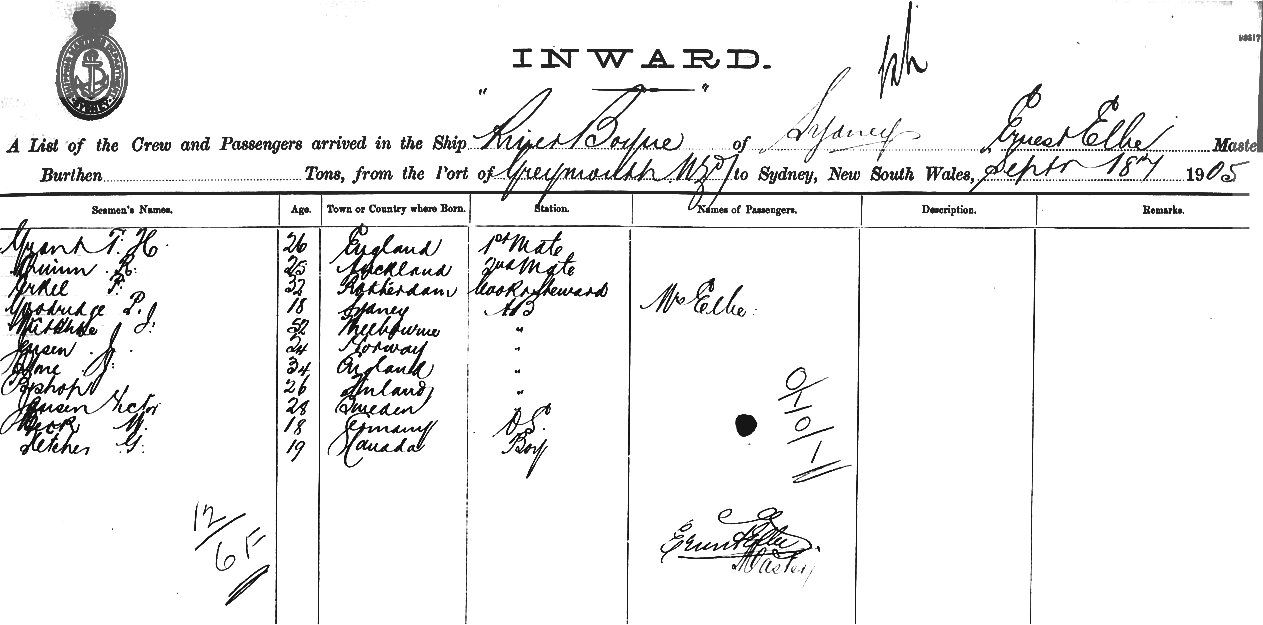 INWARD.
A List of the Crew and Passengers arrived in the Ship "River Boyne" of Sydney Ernest Elbe Maste
Burthen Tons, from the Port of Greymouth Nzd to Sydney, New South Wales, Septr 18th 1905
Seamen's Names. Age. Town or Country where Born. Station. Names of Passengers. Description. Remarks.
Grant T. H. 26 England 1st Mate
Quinn R. 25 Auckland 2nd Mate
F. 32 Rotterdam Cook & Steward
Goodridge P. J. 18 Sydney AB Mrs Elbe.
52 Melbourne "
J. 24 Norway "
J. 34 England "
Bishop 26 Finland "
Victor 28 Sweden
W. 18 Germany O.S.
Fletcher G. 19 Canada Boy
0/0/1
12/6F
Ernest Elbe
Master